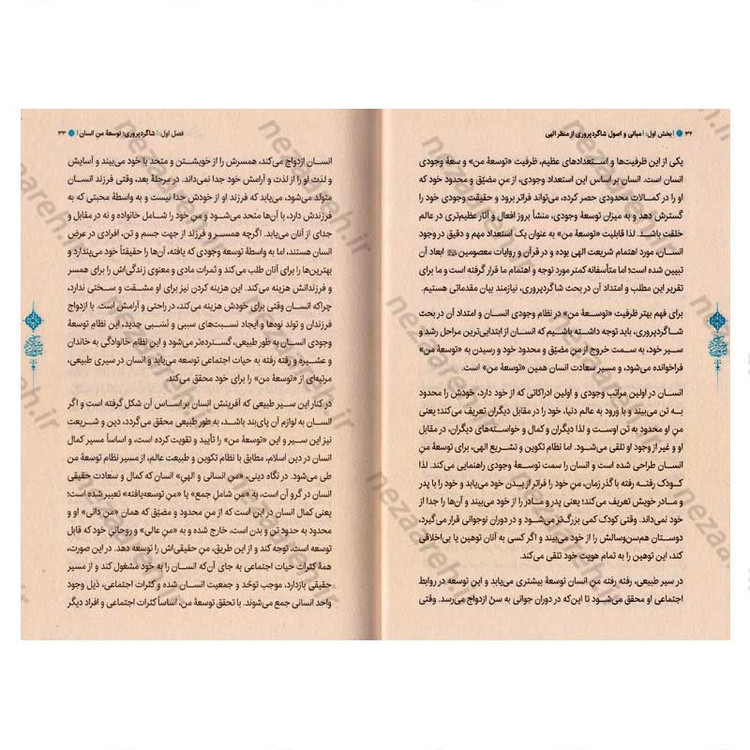 ۳۲ | بخش اول: | مبانی و اصول شاگردپروری از منظر الهی
یکی از این ظرفیت‌ها و استعدادهای عظیم، ظرفیت «توسعهٔ من» و سعهٔ وجودی
انسان است. انسان بر اساس این استعداد وجودی، از منِ مضیّق و محدود خود که
او را در کمالات محدودی حصر کرده، می‌تواند فراتر برود و حقیقت وجودی خود را
گسترش دهد و به میزان توسعهٔ وجودی، منشأ بروز افعال و آثار عظیم‌تری در عالم
خلقت باشد. لذا قابلیت «توسعهٔ من» به عنوان یک استعداد مهم و دقیق در وجود
انسان، مورد اهتمام شریعت الهی بوده و در قرآن و روایات معصومین ابعاد آن
تبیین شده است؛ اما متأسفانه کمتر مورد توجه و اهتمام ما قرار گرفته است و ما برای
تقریر این مطلب و امتداد آن در بحث شاگردپروری، نیازمند بیان مقدماتی هستیم.
برای فهم بهتر ظرفیت «توسعهٔ من» در نظام وجودی انسان و امتداد آن در بحث
شاگردپروری، باید توجه داشته باشیم که انسان از ابتدایی‌ترین مراحل رشد و
سیر خود، به سمت خروج از منِ مضیّق و محدود خود و رسیدن به «توسعهٔ من»
فراخوانده می‌شود، و مسیر سعادت انسان همین «توسعهٔ من» است.
انسان در اولین مراتب وجودی و اولین ادراکاتی که از خود دارد، خودش را محدود
به تن می‌بیند و با ورود به عالم دنیا، خود را در مقابل دیگران تعریف می‌کند؛ یعنی
منِ او محدود به تن اوست و لذا دیگران و کمال و خواسته‌های دیگران، در مقابل
او و غیر از وجود او تلقی می‌شود. اما نظام تکوین و تشریع الهی، برای توسعهٔ منِ
انسان طراحی شده است و انسان را سمت توسعهٔ وجودی راهنمایی می‌کند. لذا
کودک رفته رفته با گذر زمان، منِ خود را فراتر از بدن خود می‌یابد و خود را با پدر
و مادر خویش تعریف می‌کند؛ یعنی پدر و مادر را از خود می‌بیند و آن‌ها را جدا از
خود نمی‌داند. وقتی کودک کمی بزرگ‌تر می‌شود و در دوران نوجوانی قرار می‌گیرد،
دوستان هم‌سن‌وسالش را از خود می‌بیند و اگر کسی به آنان توهین یا بی‌اخلاقی
کند، این توهین را به تمام هویت خود تلقی می‌کند.
در سیر طبیعی، رفته رفته منِ انسان توسعهٔ بیشتری می‌یابد و این توسعه در روابط
اجتماعی او محقق می‌شود تا این‌که در دوران جوانی به سنّ ازدواج می‌رسد. وقتی
فصل اول: | شاگردپروری؛ توسعهٔ من انسان | ۳۳
انسان ازدواج می‌کند، همسرش را از خویشتن و متحد با خود می‌بیند و آسایش
و لذت او را از لذت و آرامش خود جدا نمی‌داند. در مرحلهٔ بعد، وقتی فرزند انسان
متولد می‌شود، می‌یابد که فرزند او از خودش جدا نیست و به واسطهٔ محبتی که به
فرزندش دارد، با آن‌ها متحد می‌شود و منِ خود را شامل خانواده و نه در مقابل و
جدای از آنان می‌یابد. اگرچه همسر و فرزند از جهت جسم و تن، افرادی در عرض
انسان هستند، اما به واسطهٔ توسعه وجودی که یافته، آن‌ها را حقیقتاً خود می‌پندارد و
بهترین‌ها را برای آنان طلب می‌کند و ثمرات مادی و معنوی زندگی‌اش را برای همسر
و فرزندانش هزینه می‌کند. این هزینه کردن نیز برای او مشقت و سختی ندارد،
چراکه انسان وقتی برای خودش هزینه می‌کند، در راحتی و آرامش است. با ازدواج
فرزندان و تولد نوه‌ها و ایجاد نسبت‌های سببی و نَسَبی جدید، این نظامِ توسعهٔ
وجودی انسان به طور طبیعی، گسترده‌تر می‌شود و این نظام خانوادگی به خاندان
و عشیره و رفته رفته به حیات اجتماعی توسعه می‌یابد و انسان در سیری طبیعی،
مرتبه‌ای از «توسعهٔ من» را برای خود محقق می‌کند.
در کنار این سیر طبیعی که آفرینش انسان بر اساس آن شکل گرفته است و اگر
انسان به لوازم آن پای‌بند باشد، به طور طبیعی محقق می‌گردد، دین و شریعت
نیز این سیر و این «توسعهٔ من» را تأیید و تقویت کرده است، و اساساً مسیر کمال
انسان در دین اسلام، مطابق با نظام تکوین و طبیعت عالم، از مسیر نظام توسعهٔ من
طی می‌شود. در نگاه دینی، «منِ انسانی و الهیِ» انسان که کمال و سعادت حقیقی
انسان در گرو آن است، به «منِ شاملِ جمع» یا «منِ توسعه‌یافته» تعبیر شده است؛
یعنی کمال انسان در این است که از منِ محدود و مضیّق که همان «منِ دانی» او و
محدود به حدود تن و بدن است، خارج شده و به «منِ عالی» و روحانیِ خود که قابل
توسعه است، توجه کند و از این طریق، منِ حقیقی‌اش را توسعه دهد. در این صورت،
همهٔ کثرات حیات اجتماعی به جای آن‌که انسان را به خود مشغول کند و از مسیر
حقیقی بازدارد، موجب توحّد و جمعیت انسان شده و کثرات اجتماعی، ذیل وجود
واحد انسانی جمع می‌شوند. با تحقق توسعهٔ من، اساساً کثرات اجتماعی و افراد دیگر
nezaareh.ir